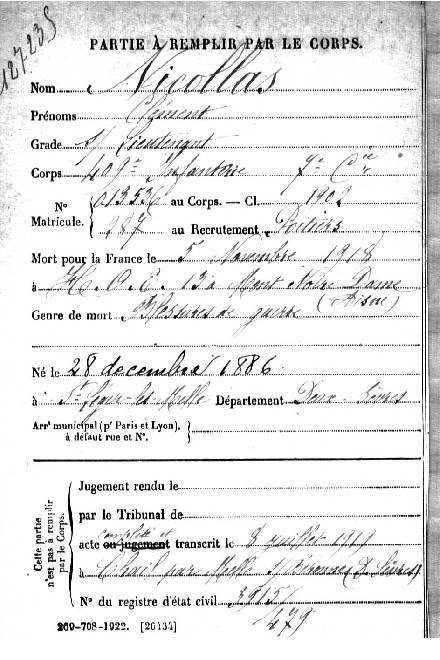 127.235
PARTIE À REMPLIR PAR LE CORPS.
Nom Nicollas
Prénoms Clément
Grade s/ Lieutenant
Corps 409e Infanterie 7e Cie
N° Matricule. 013536 au Corps. — Cl. 1902
287 au Recrutement Poitiers
Mort pour la France le 5 Novembre 1918
à H. O. E. 13 à Mont Notre Dame
(Aisne)
Genre de mort Blessures de guerre
Né le 28 decembre 1886
à St Léger-les-Melle Département Deux-Sèvres
Arrt municipal (pr Paris et Lyon), à défaut rue et N°.
Cette partie n'est pas à remplir par le Corps.
Jugement rendu le
par le Tribunal de
complété et
acte ou jugement transcrit le 8 juillet 1919
à Chail par Melle (D. Sèvres)
N° du registre d'état civil
479
209-708-1922. [26434]